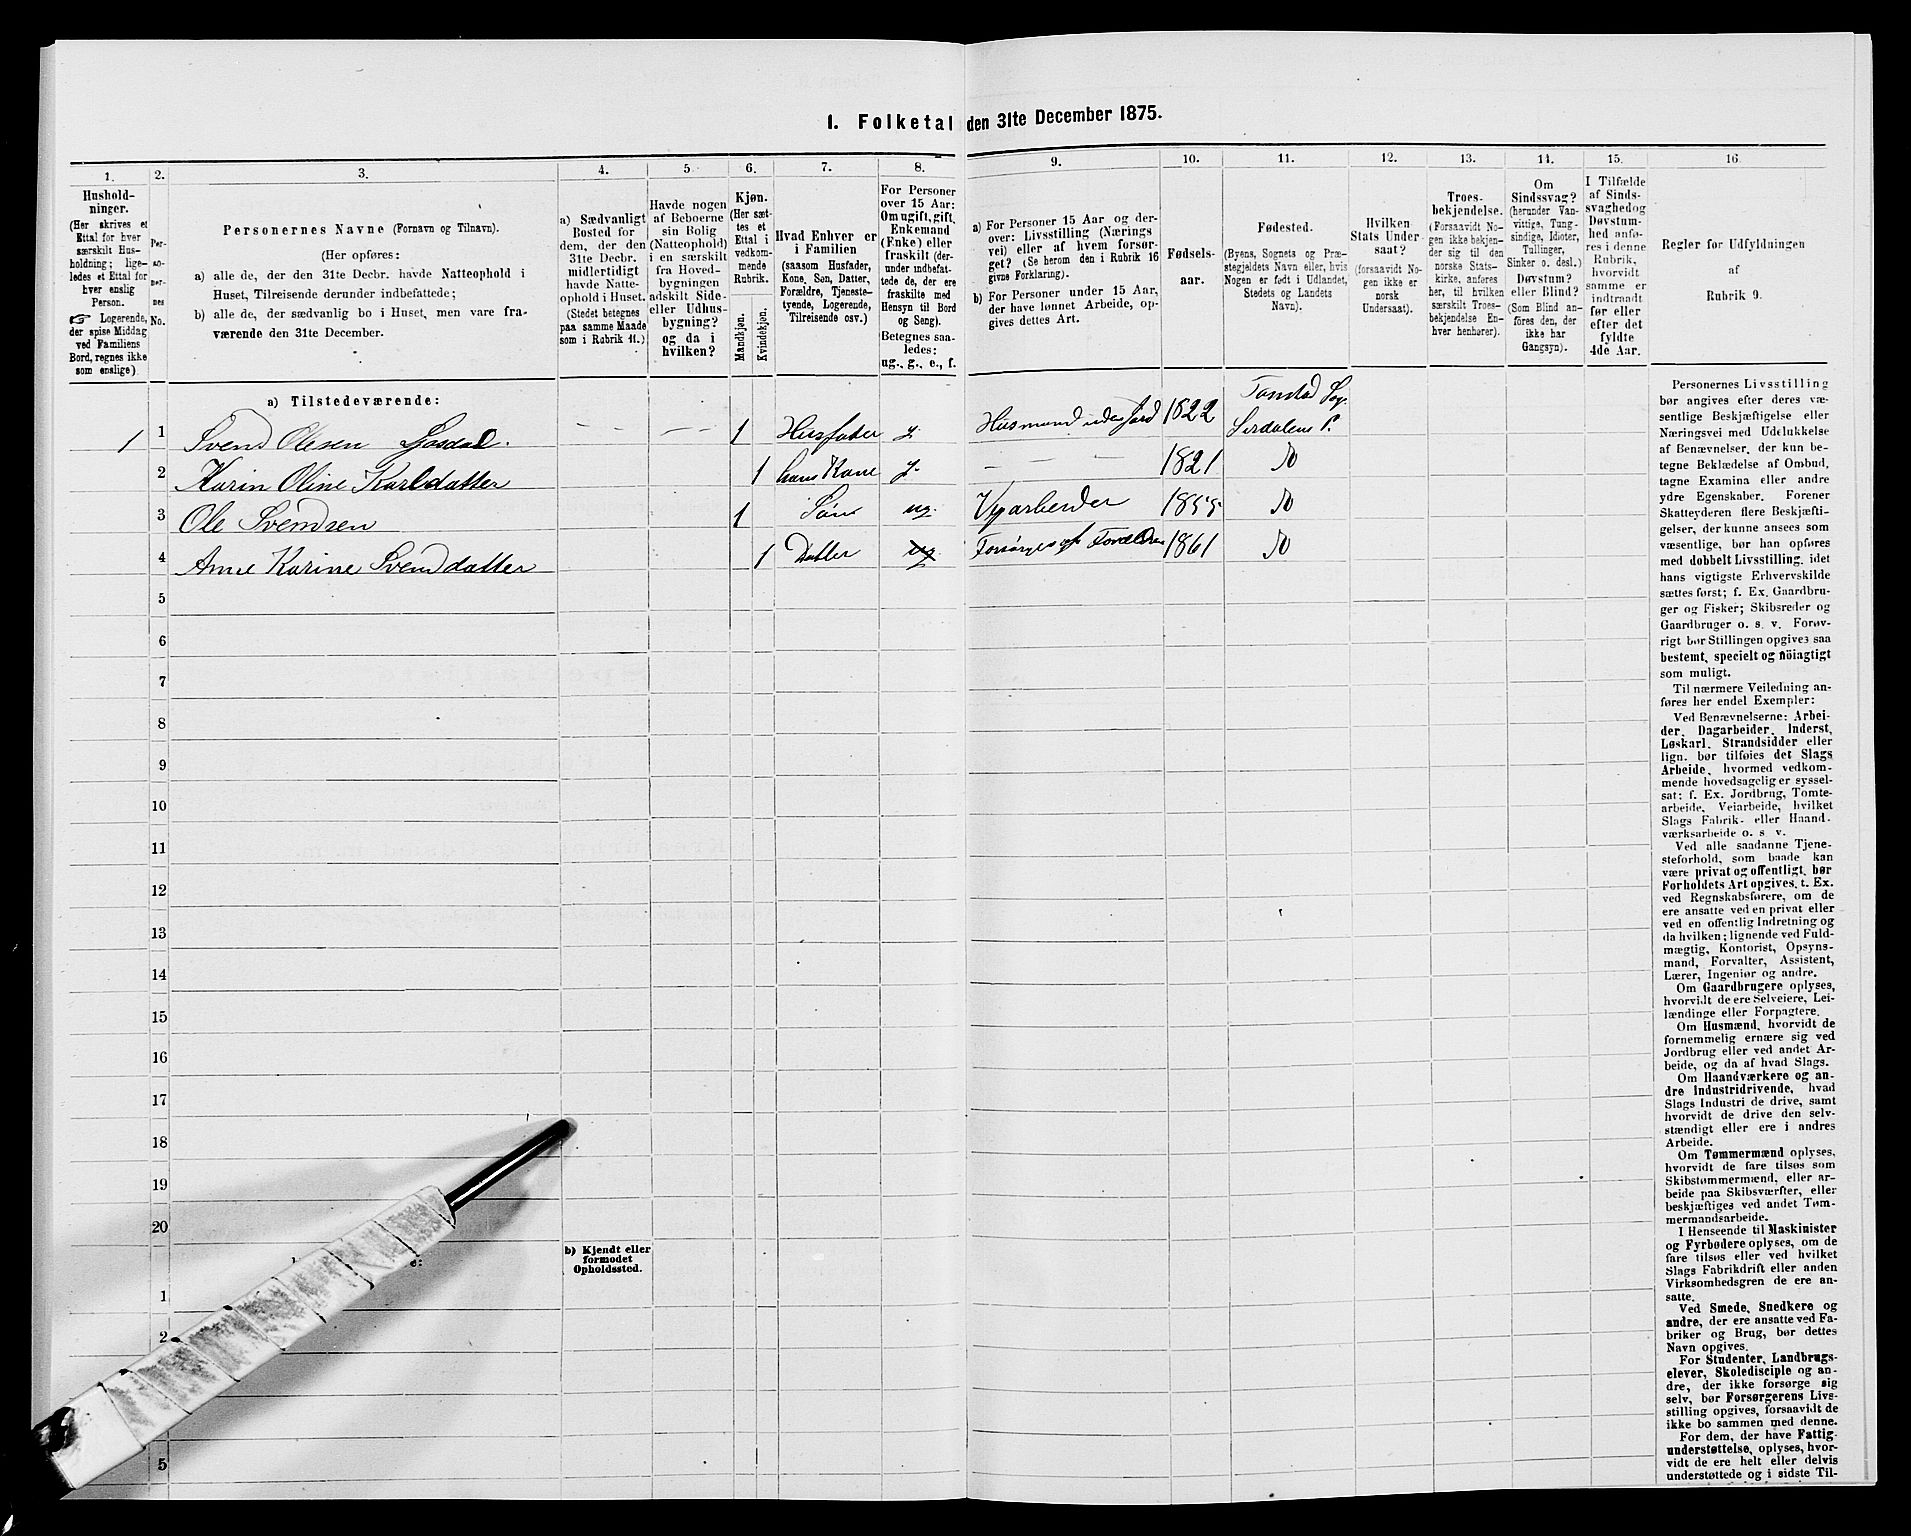 1. Folketal den 31te December 1875.
1.
Hushold-
ninger.
(Her skrives et
Ettal for hver
særskilt Hus-
holdning; lige-
ledes et Ettal for
hver enslig
Person.
☞ Logerende,
der spise Middag
ved Familiens
Bord, regnes ikke
som enslige)
2.
Per-
so-
ner-
nes
No.
3.
Personernes Navne (Fornavn og Tilnavn).
(Her opføres:
a) alle de, der den 31te Decbr. havde Natteophold i
Huset, Tilreisende derunder indbefattede;
b) alle de, der sædvanlig bo i Huset, men vare fra-
værende den 31te December.
4.
a) Sædvanligt
Bosted for
dem, der den
31te Decbr.
midlertidigt
havde Natte-
ophold i Huset.
(Stedet betegnes
paa samme Maade
som i Rubrik 11.)
5
Havde nogen
af Beboerne
sin Bolig
(Natteophold)
i en særskilt
fra Hoved-
bygningen
adskilt Side-
eller Udhus-
bygning?
og da i
hvilken?
6.
Kjøn.
(Her sæt-
tes et
Ettal i
vedkom-
mende
Rubrik.
Mandkjøn.
Kvindekjøn.
7.
Hvad Enhver er
i Familien
(saasom Husfader,
Kone, Søn, Datter,
Forældre, Tjeneste-
tyende, Logerende,
Tilreisende osv.)
8.
For Personer
over 15 Aar:
Om ugift, gift,
Enkemand
(Enke) eller
fraskilt (der-
under indbefat-
tede de, der ere
fraskilte med
Hensyn til Bord
og Seng).
Betegnes saa-
ledes:
ug., g., e., f.
9.
a) For Personer 15 Aar og der-
over: Livsstilling (Nærings
vei) eller af hvem forsør-
get? (Se herom den i Rubrik 16
givne Forklaring).
b) For Personer under 15 Aar,
der have lønnet Arbeide, op-
gives dettes Art.
10.
Fødsels-
aar.
11.
Fødested.
(Byens, Sognets og Præ-
stegjeldets Navn eller, hvis
Nogen er født i Udlandet,
Stedets og Landets
Navn).
12.
Hvilken
Stats Under-
saat?
(forsaavidt No-
gen ikke er
norsk
Undersaat).
13.
Troes-
bekjendelse.
(Forsaavidt No-
gen ikke bekjen-
der sig til den
norske Stats-
kirke, anføres
her, til hvilken
særskilt Troes-
bekjendelse En-
hver henhører).
14.
Om
Sindssvag?
(herunder Van-
vittige, Tung-
sindige, Idioter,
Tullinger,
Sinker o. desl.)
Døvstum?
eller Blind?
(Som Blind an-
føres den, der
ikke har
Gangsyn).
15.
I Tilfælde
af Sinds-
svaghed og
Døvstum-
hed anfø-
res i denne
Rubrik,
hvorvidt
samme er
indtraadt
før eller
efter det
fyldte
4de Aar.
16.
Regler for Udfyldningen
af
Rubrik 9.
a) Tilstedeværende:
1 1 Svend Olesen – – – – 1 Husfader g. Husmand uden Jord 1822 Tonstad Sog. Sirdalens P.
2 Karin Oline Karlsdatter 1 hans Kone g. – – – 1821 Do
3 Ole Svendsen 1 Søn ug. Veiarbeider 1855 Do
4 Anne Karine Svendsdatter 1 Datter ug Forsørges af Forældrene 1861 Do
5
6
7
8
9
10
11
12
13
14
15
16
17
18
19
20
b) Kjendt eller
formodet
Opholdssted.
e:
1
2
5
Personernes Livsstilling
bør angives efter deres væ-
sentlige Beskjæftigelse eller
Næringsvei med Udelukkelse
af Benævnelser, der kun be-
tegne Beklædelse af Ombud,
tagne Examina eller andre
ydre Egenskaber. Forener
Skatteyderen flere Beskjæfti-
gelser, der kunne ansees som
væsentlige, bør han opføres
med dobbelt Livsstilling, idet
hans vigtigste Erhvervskilde
sættes først; f. Ex. Gaardbru-
ger og Fisker; Skibsreder og
Gaardbruger o. s. v. Forøv-
rigt bør Stillingen opgives saa
bestemt, specielt og nøiagtigt
som muligt.
Til nærmere Veiledning an-
føres her endel Exempler:
Ved Benævnelserne: Arbei-
der, Dagarbeider, Inderst,
Løskarl, Strandsidder eller
lign. bør tilføies det Slags
Arbeide, hvormed vedkom-
mende hovedsagelig er syssel-
sat; f. Ex. Jordbrug, Tomte-
arbeide, Veiarbeide, hvilket
Slags Fabrik- eller Haand-
værksarbeide o. s. v.
Ved alle saadanne Tjene-
steforhold, som baade kan
være privat og offentligt, bør
Forholdets Art opgives, t. Ex.
ved Regnskabsførere, om de
ere ansatte ved en privat eller
ved en offentlig Indretning og
da hvilken; lignende ved Fuld-
mægtig, Kontorist, Opsyns-
mand, Forvalter, Assistent,
Lærer, Ingeniør og andre.
Om Gaardbrugere oplyses,
hvorvidt de ere Selveiere, Lei-
lændinge eller Forpagtere.
Om Husmænd, hvorvidt de
fornemmelig ernære sig ved
Jordbrug eller ved andet Ar-
beide, og da af hvad Slags.
Om Haandværkere og an-
dre Industridrivende, hvad
Slags Industri de drive, samt
hvorvidt de drive den selv-
stændigt eller ere i andres
Arbeide.
Om Tømmermænd oplyses,
hvorvidt de fare tilsøs som
Skibstømmermænd, eller ar-
beide paa Skibsværfter, eller
beskjæftiges ved andet Tøm-
mermandsarbeide.
I Henseende til Maskinister
og Fyrbødere oplyses, om de
fare tilsøs eller ved hvilket
Slags Fabrikdrift eller anden
Virksomhedsgren de ere an-
satte.
Ved Smede, Snedkere og
andre, der ere ansatte ved Fa-
briker og Brug, bør dettes
Navn opgives.
For Studenter, Landbrugs-
elever, Skoledisciple og an-
dre, der ikke forsørge sig
selv, bør Forsørgerens Livs-
stilling opgives, forsaavidt de
ikke bo sammen med denne.
For dem, der have Fattig-
understøttelse, oplyses, hvor-
vidt de ere helt eller delvis
understøttede og i sidste Til-